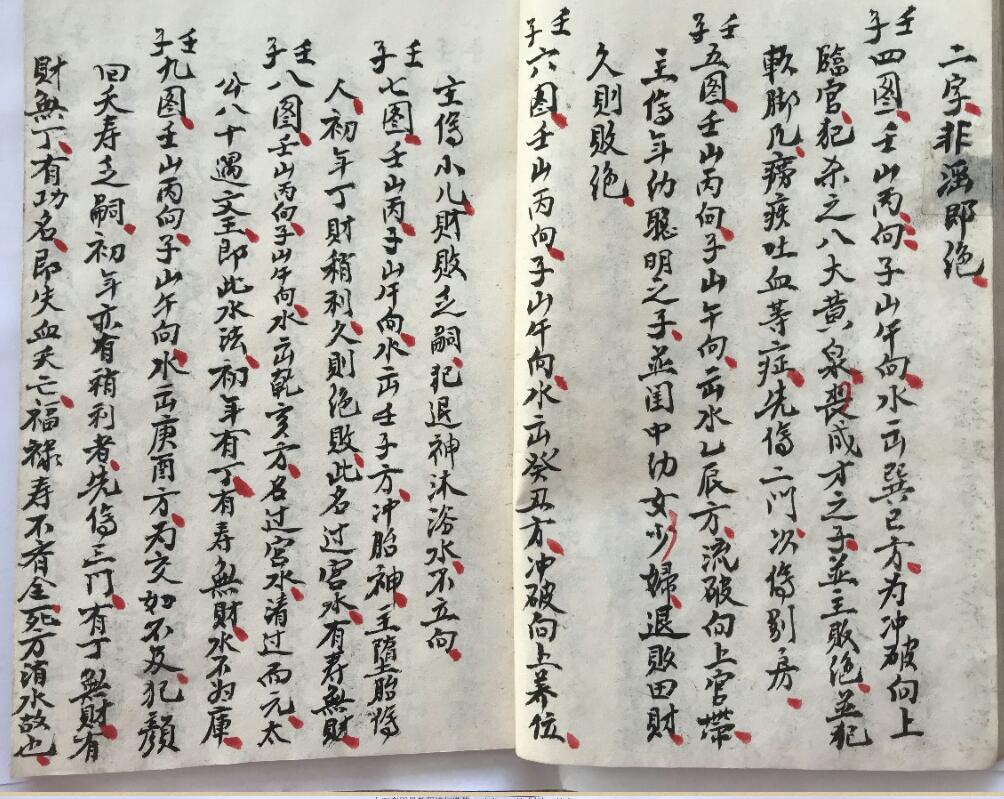 二字非滛即绝
壬子四图壬山丙向子山午向水出巽巳方为冲破向上
臨官犯杀之八大黄泉喪成才之子並主敗绝並犯
軟脚凡痨疾吐血等症先傷二門次傷别房
壬子五图壬山丙向子山午向出水乙辰方流破向上官帶
主傷年幼聪明之子並闺中幼女少婦退敗田財
久則敗绝
壬子六图壬山丙向子山午向水出癸丑方冲破向上养位
主傷小儿財敗乏嗣犯退神沐浴水不立向
壬子七图壬山丙子山午向水出壬子方冲胎神主堕胎傷
人初年丁財稍利久則绝敗此名过宫水有寿無財
壬子八图壬山丙向子山午向水出乾亥方名过宫水清过而元太
公八十遇文王即此水法初年有丁有寿無財水不归庫
壬子九图壬山丙向子山午向水出庚酉方为交如不及犯顏
回夭寿乏嗣初年亦有稍利者先傷三門有丁無財有
財無丁有功名即失血夭亡福祿寿不有全死方消水故也